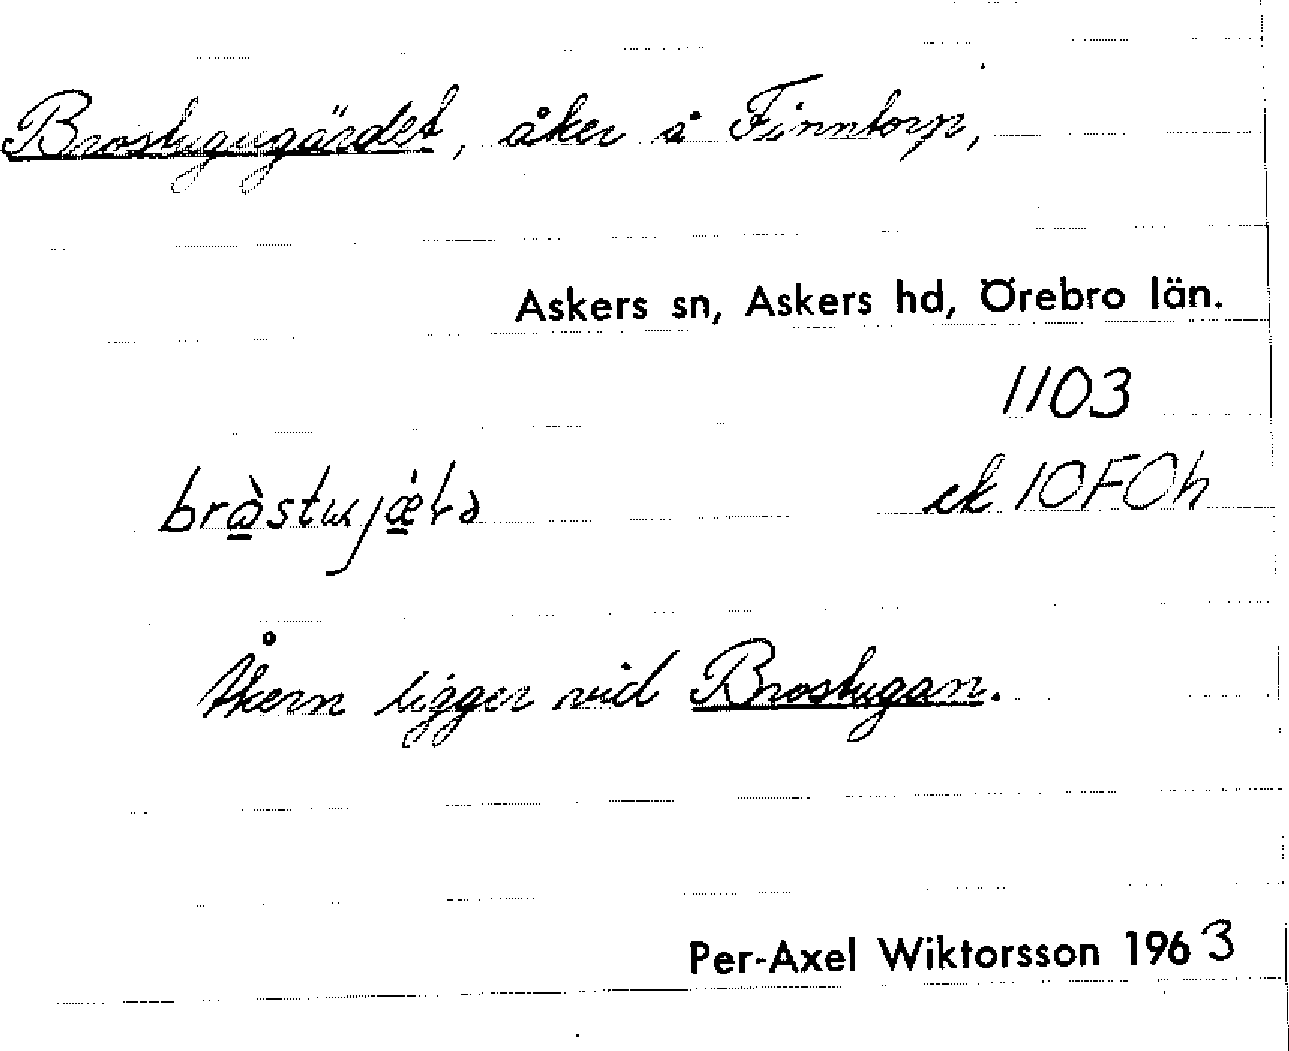 Brostugugärdet, åker å Finntorp,
Askers sn, Askers hd, Örebro län.
1103
ek 10F0h
Åkern ligger vid Brostugan.
Per-Axel Wiktorsson 1963